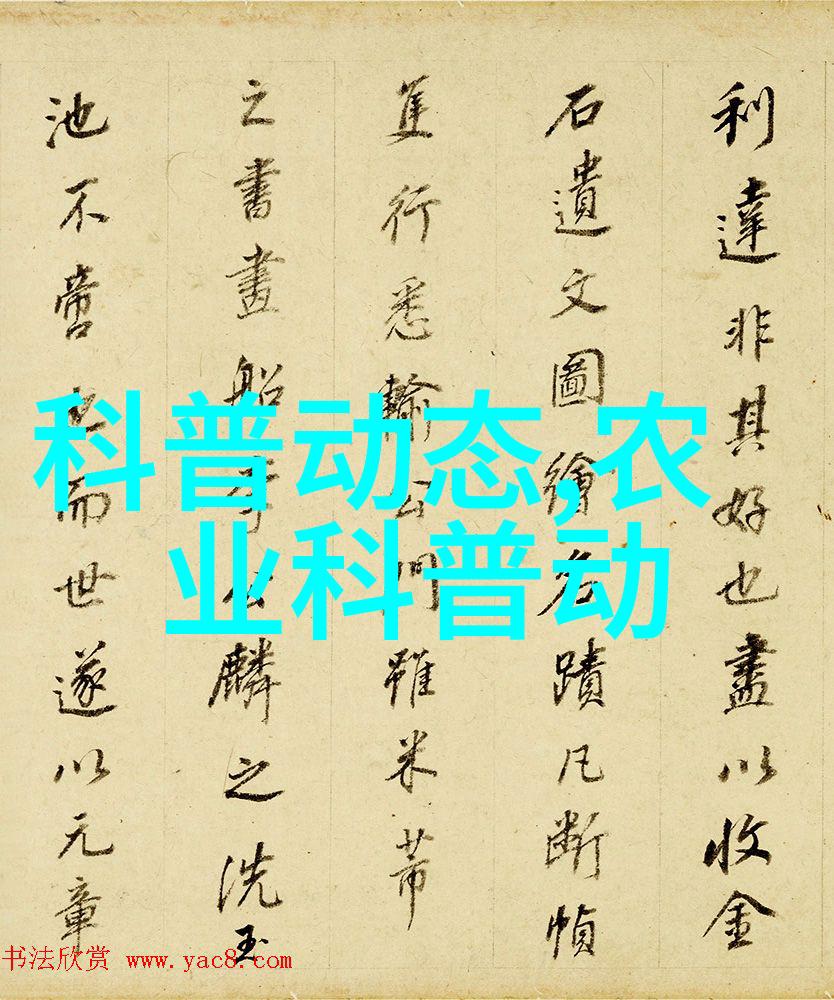 利達非其好也盡以收金
石遺文圖繪名蹟凡斷幀
隻行悉輸公門雖米芾
之書畫船李公麟之洗玉
池不啻而世遂以元章
科普动态,农
业科普动
书法欣赏 www.yac8.com